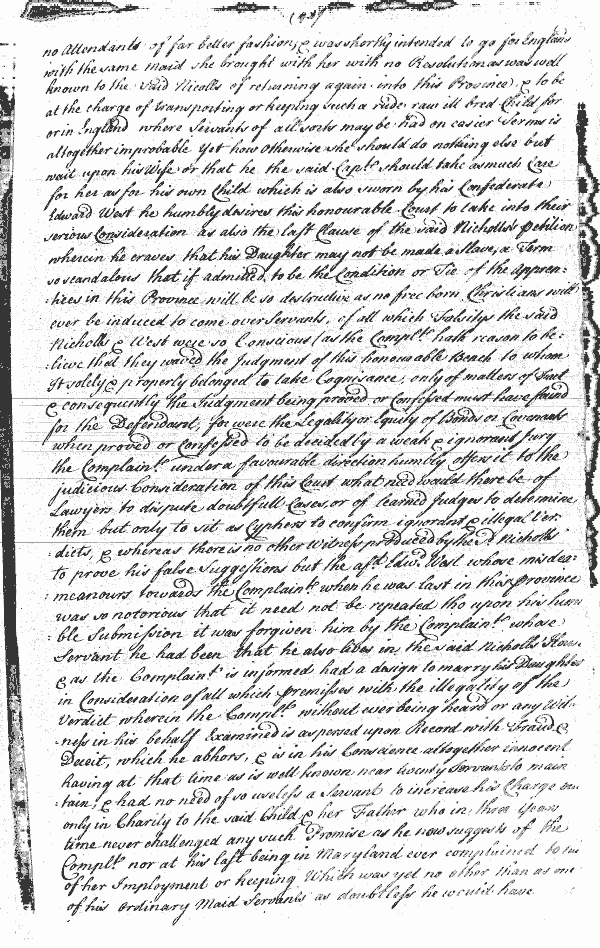 no Attendants of far better fashion, & was shortly intended to go for England
with the same maid she brought with her with no Resolution as was well
known to the said Nicolls of returning again into this Province, & to be
at the charge of transporting or keeping such a rude raw ill bred Child for
or in England where Servants of all sorts may be had on easier Terms is
altogether improbable yet how otherwise she should do nothing else but
wait upon his Wife or that he the said Capt. should take as much Care
for her as for his own Child which is also sworn by his Confederate
Edward West he humbly desires this honourable Court to take into their
serious Consideration as also the last Clause of the said Nicholls's petition
wherein he craves that his Daughter may not be made a Slave, a Term
so scandalous that if admitted to be the Condition or Tie of the appren-
:tices in this Province will be so destructive as no free born Christians will
ever be induced to come over Servants, of all which Falsitys the said
Nicholls & West were so Conscious (as the Complt. hath reason to be-
:lieve that they waved the Judgment of this honourable Bench to whom
It solely & properly belonged to take Cognisance, only of matters of Fact
& consequently the Judgment being proved or Confessed must have found
for the Defendant, for were the Legality or Equity of Bonds or Covenants
when proved or Confessed to be decided by a weak & ignorant Jury
the Complaint. under a favourable direction humbly offers it to the
judicious Consideration of this Court what need would there be of
Lawyers to dispute doubtfull Cases, or of learned Judges to determine
them but only to sit as Cyphers to confirm ignorant & illegal Ver-
dicts, & whereas there is no other Witness produced by the sd. Nicholls
to prove his false suggestions but the afd. Edwd. West whose misdea-
:meanours towards the Complaint. when he was last in this province
was so notorious that it need not be repeated tho upon his hum
ble Submission it was forgiven him by the Complaint. whose
Servant he had been that he also lives in the said Nicholls's House
& as the Complaint. is informed had a design to marry his Daughter
in Consideration of all which premisses with the illegality of the
Verdict wherein the Complt. without ever being heard or any Wit-
ness in his behalf Examined is aspersed upon Record with Fraud &
Deceit, which he abhors, & is in his Conscience altogether innocent
having at that time as is well known near twenty Servants to main
:tain, & had no need of so useless a Servant to increase his Charge
only in Charity to the said Child & her Father who in three Years
time never challenged any such Promise as he now suggests of the
Complt. nor at his last being in Maryland ever complained to him
of her Imployment or keeping Which was yet no other than as one
of his ordinary Maid Servants as doubtless he would have